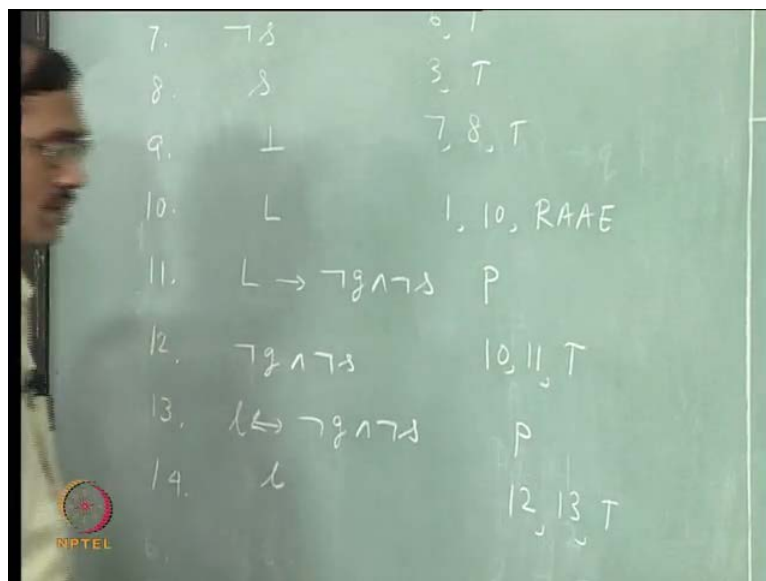 7. ¬s 6, T
8. s 3, T
9. ⊥ 7, 8, T
10. L 1, 10, RAAE
11. L → ¬g∧¬s P
12. ¬g∧¬s 10, 11, T
13. l ↔ ¬g∧¬s P
14. l 12, 13, T
NPTEL